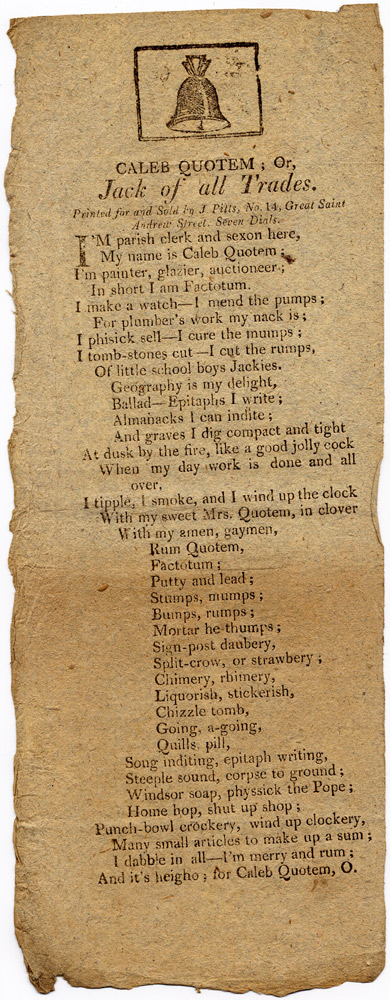 CALEB QUOTEM ; Or,
Jack of all Trades.
Printed for and Sold by J Pitts, No. 14, Great Saint
Andrew Street. Seven Dials.
I'M parish clerk and sexon here,
My name is Caleb Quotem ;
I'm painter, glazier, auctioneer ;
In short I am Factotum.
I make a watch—I mend the pumps ;
For plumber's work my nack is ;
I phisick sell—I cure the mumps ;
I tomb-stones cut—I cut the rumps,
Of little school boys Jackies.
Geography is my delight,
Ballad—Epitaphs I write ;
Almanacks I can indite ;
And graves I dig compact and tight
At dusk by the fire, like a good jolly cock
When my day work is done and all
over,
I tipple, I smoke, and I wind up the clock
With my sweet Mrs. Quotem, in clover
With my amen, gaymen,
Rum Quotem,
Factotum ;
Putty and lead ;
Stumps, mumps ;
Bumps, rumps ;
Mortar he thumps ;
Sign-post daubery,
Split-crow, or strawbery ;
Chimery, rhimery,
Liquorish, stickerish,
Chizzle tomb,
Going, a-going,
Quills, pill,
Song inditing, epitaph writing,
Steeple sound, corpse to ground ;
Windsor soap, physsick the Pope ;
Home hop, shut up shop ;
Punch-bowl crockery, wind up clockery,
Many small articles to make up a sum ;
I dabble in all—I'm merry and rum ;
And it's heigho ; for Caleb Quotem, O.